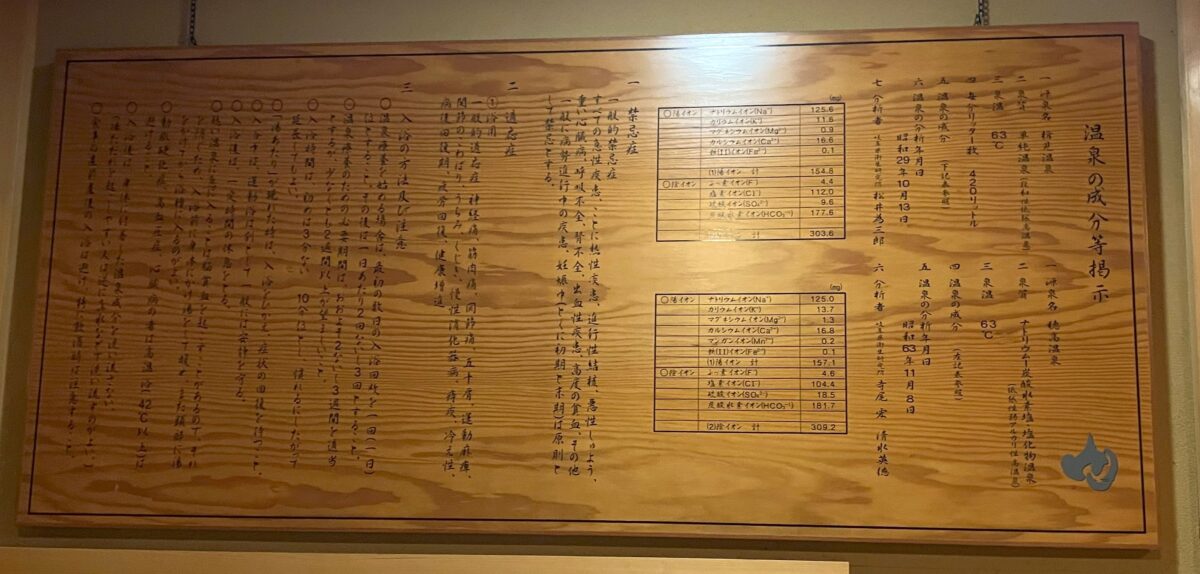 温泉の成分等掲示
一 源泉名 槍見温泉
二 泉質 単純温泉
三 泉温 63℃
四 毎分リッター数 420リットル
五 温泉の成分 (下記表参照)
六 温泉の分析年月日
昭和29年10月13日
七 分析者 岐阜県衛生研究所 松井為三郎
一 源泉名 穂高温泉
二 泉質 ナトリウム-炭酸水素塩・塩化物温泉
三 泉温 63℃
四 温泉の成分 (左記表参照)
五 温泉の分析年月日
昭和63年11月8日
六 分析者 岐阜県衛生研究所 寺尾 宏 清水英徳
(mg)
○陽イオン ナトリウムイオン(Na⁺) 125.6
カリウムイオン(K⁺) 11.6
マグネシウムイオン(Mg²⁺) 0.9
カルシウムイオン(Ca²⁺) 16.6
鉄(II)イオン(Fe²⁺) 0.1
(1)陽イオン 計 154.8
○陰イオン ふっ素イオン(F⁻) 4.4
塩素イオン(Cl⁻) 112.0
硫酸イオン(SO₄²⁻) 9.6
炭酸水素イオン(HCO₃⁻) 177.6
イオン 計 303.6
(mg)
○陽イオン ナトリウムイオン(Na⁺) 125.0
カリウムイオン(K⁺) 13.7
マグネシウムイオン(Mg²⁺) 1.3
カルシウムイオン(Ca²⁺) 16.8
マンガンイオン(Mn²⁺) 0.2
鉄(II)イオン(Fe²⁺) 0.1
(1)陽イオン 計 157.1
○陰イオン ふっ素イオン(F⁻) 4.6
塩素イオン(Cl⁻) 104.4
硫酸イオン(SO₄²⁻) 18.5
炭酸水素イオン(HCO₃⁻) 181.7
(2)陰イオン 計 309.2
一 禁忌症
一般的禁忌症
すべての急性疾患、ことに熱性疾患、進行性結核、悪性しゅよう、
重い心臓病、呼吸不全、腎不全、出血性疾患、高度の貧血、その他
一般に病勢進行中の疾患、妊娠中(とくに初期と末期)は原則と
して禁忌とする。
二 適応症
①浴用
一般的適応症 神経痛、筋肉痛、関節痛、五十肩、運動麻痺、
関節のこわばり、うちみ、くじき、慢性消化器病、痔疾、冷え性、
病後回復期、疲労回復、健康増進
三 入浴の方法及び注意
○温泉療養を始める場合は、最初の数日の入浴回数を一回(一日)
位とすること。その後は一日あたり2回ないし3回とすること。
○温泉療養のための必要期間は、おおよそ2ないし3週間を適当
とするが、少なくとも2週間以上が望ましいこと。
○入浴時間は、初めは3分ないし10分位とし、慣れるにしたがって
延長してもよい。
○入浴中は、運動浴は別として、一般には安静を守る。
○入浴後は、一定時間の休息をとる。